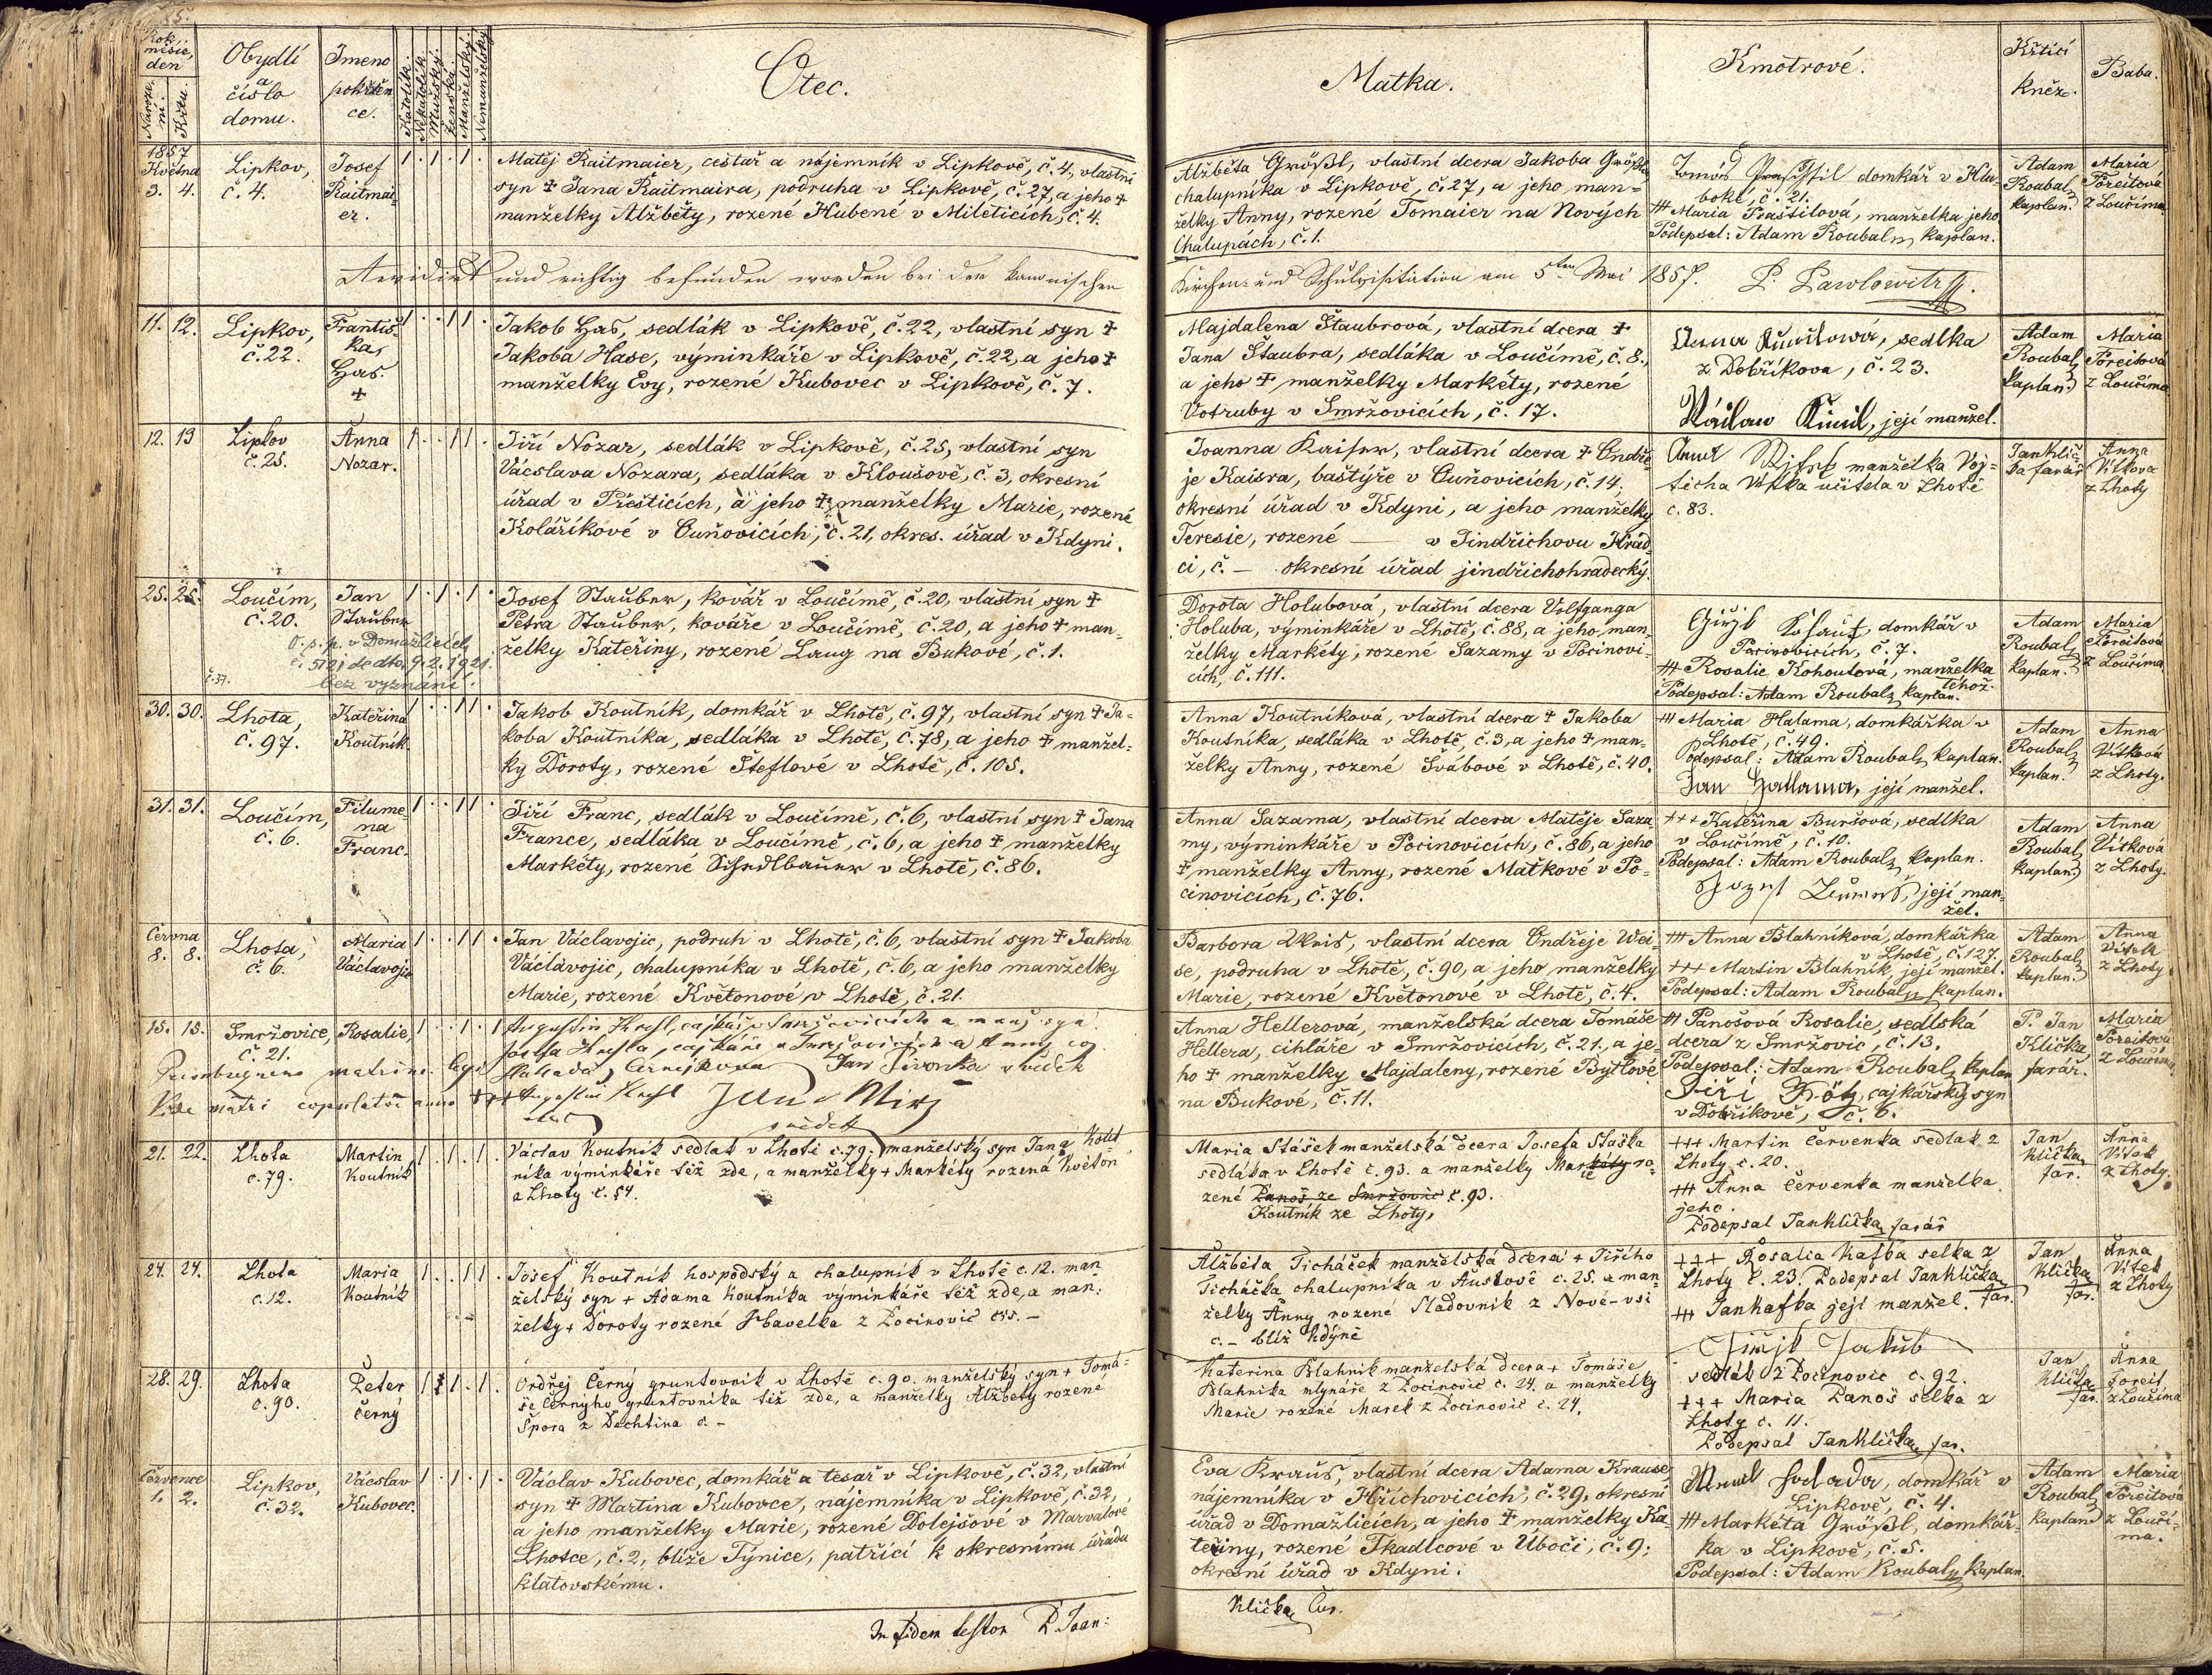 Rok, měsíc, den
Naroze-
ní.
Křtu.
Obydlí
a
číslo
domu.
Jmeno
pokřtěn-
ce.
Katolík.
Nekatolík.
Mužský.
Ženské.
Manželský.
Nemanželský.
Otec.
Matka.
Kmotrové.
Křtící
kněz.
Baba.
1857
Května
3. 4.
Lipkov,
č. 4.
Josef
Raitmai-
er.
1 . 1 . 1 .
Matěj Raitmaier, cestář a nájemník v Lipkově, č. 4, vlastní
syn ‡ Jana Raitmaira, podruha v Lipkově, č. 27, a jeho ‡
manželky Alžběty, rozené Hubené v Mileticích, č. 4.
Alžběta Größl, vlastní dcera Jakoba Größla
chalupníka v Lipkově, č. 27, a jeho man-
želky Anny, rozené Tomaier na Nových
Chalupách, č. 1.
Tomáš domkář v Hlu-
boké, č. 21.
‡‡ Maria Praštilová, manželka jeho
Podepsal: Adam Roubal, kaplan.
Adam
Roubal,
kaplan.
Maria
Foreitová
z Loučíma.
Revidirt und richtig befunden worden bei der kanonischen
Kirchen- und Schulvisitation am 5ten Mai 1857. P. Pawlowitz
11. 12.
Lipkov,
č. 22.
Františ-
ka,
Has.
‡
1 . . 1 1 .
Jakob Has, sedlák v Lipkově, č. 22, vlastní syn ‡
Jakoba Hase, výminkáře v Lipkově, č. 22, a jeho ‡
manželky Evy, rozené Kubovec v Lipkově, č. 7.
Majdalena Štaubrová, vlastní dcera ‡
Jana Štaubra, sedláka v Loučímě, č. 8.,
a jeho ‡ manželky Markéty, rozené
Votruby v Smržovicích, č. 17.
Anna sedlka
z Dobříkova, č. 23.
Václaw její manžel.
Adam
Roubal,
kaplan.
Maria
Foreitová
z Loučíma
12. 13
Lipkov
č. 25.
Anna
Nozar.
1 . . 1 1 .
Jiří Nozar, sedlák v Lipkově, č. 25, vlastní syn
Vácslava Nozara, sedláka v Kloušově, č. 3, okresní
úřad v Přešticích, a jeho ‡ manželky Marie, rozené
Koláříkové v Ouňovicích, č. 21, okres. úřad v Kdyni.
Joanna Kaiser, vlastní dcera ‡ Ondře-
je Kaisra, baštýře v Ouňovicích, č. 14,
okresní úřad v Kdyni, a jeho manželky
Teresie, rozené — v Jindřichovu Hrad-
ci, č. — okresní úřad jindřichohradecký.
Anna manželka Voj-
ticha Vitka učitela v Lhotě
č. 83.
Jan Klič-
ka farář
Anna
Vitkova
z Lhoty
25. 25.
Loučím,
č. 20.
Jan
Stauber
1 . 1 . 1 .
O. s. p. v Domažlicích
č. 5121 de dto. 9.2.1921.
č. 37. bez vyznání.
Josef Stauber, kovář v Loučímě, č. 20, vlastní syn ‡
Petra Stauber, kováře v Loučímě, č. 20, a jeho ‡ man-
želky Kateřiny, rozené Laug na Bukové, č. 1.
Dorota Holubová, vlastní dcera Volfganga
Holuba, výminkáře v Lhotě, č. 88, a jeho man-
želky Markéty, rozené Sazamy v Pocinovi-
cích, č. 111.
domkář v
Pocinovicích, č. 7.
‡‡ Rosalie Kohoutová, manželka
téhož.
Podepsal: Adam Roubal, kaplan.
Adam
Roubal,
kaplan.
Maria
Foreitova
z Loučíma
30. 30.
Lhota,
č. 97.
Kateřina
Koutník.
1 . . 1 1 .
Jakob Koutník, domkář v Lhotě, č. 97, vlastní syn ‡ Ja-
koba Koutníka, sedláka v Lhotě, č. 78, a jeho ‡ manžel-
ky Doroty, rozené Steflové v Lhotě, č. 105.
Anna Koutníková, vlastní dcera ‡ Jakoba
Koutníka, sedláka v Lhotě, č. 3, a jeho ‡ man-
želky Anny, rozené Svábové v Lhotě, č. 40.
+++ Maria Halama, domkářka v
Lhotě, č. 49.
Podepsal: Adam Roubal, kaplan.
Jan Hallama, její manžel.
Adam
Roubal,
kaplan.
Anna
Vítková
z Lhoty.
31. 31.
Loučím,
č. 6.
Filume-
na
Franc.
1 . . 1 1 .
Jiří Franc, sedlák v Loučímě, č. 6, vlastní syn ‡ Jana
France, sedláka v Loučímě, č. 6, a jeho ‡ manželky
Markéty, rozené v Lhotě, č. 86.
Anna Sazama, vlastní dcera Matěje Saza-
my, výminkáře v Pocinovicích, č. 86, a jeho
‡ manželky Anny, rozené Matkové v Po-
cinovicích, č. 76.
+++ Kateřina Buršová, sedlka
v Loučímě, č. 10.
Podepsal: Adam Roubal, kaplan.
Jozef její man-
žel.
Adam
Roubal,
kaplan
Anna
Vítková
z Lhoty.
Června
8. 8.
Lhota,
č. 6.
Maria
Václavojic
1 . . 1 1 .
Jan Václavojic, podruh v Lhotě, č. 6, vlastní syn ‡ Jakoba
Václavojic, chalupníka v Lhotě, č. 6, a jeho manželky
Marie, rozené Květonové v Lhotě, č. 21.
Barbora Weis, vlastní dcera Ondřeje Wei-
se, podruha v Lhotě, č. 90, a jeho manželky
Marie, rozené Květonové v Lhotě, č. 4.
+++ Anna Blahníková, domkářka
v Lhotě, č. 127.
+++ Martin Blahník, její manžel.
Podepsal: Adam Roubal, kaplan.
Adam
Roubal,
kaplan.
Anna
Vítek
z Lhoty
15. 15.
Smržovice,
č. 21.
Rosalie,
1 . . 1 . 1
Augustin cajkář v Smržovicích a manž. syn
Josefa cajkáře v Smržovicích a Anny
Jan Sivonka svědek
svědek
Anna Hellerová, manželská dcera Tomáše
Hellera, cihláře v Smržovicích, č. 21, a je-
ho ‡ manželky Majdaleny, rozené Bytlové
na Bukové, č. 11.
‡‡ Panošová Rosalie, sedlská
dcera z Smržovic, č. 13.
Podepsal: Adam Roubal, kaplan
Jiří cajkářský syn
v Dobříkově, č. 6.
P. Jan
Klička,
farář.
Maria
Foreitová
z Loučíma
21. 22.
Lhota
č. 79.
Martin
Koutník
1 . 1 . 1 .
Václav Koutnik sedlak v Lhotě č. 79. manželský syn Jana Kout
nika výminkáře též zde, a manželky + Markéty rozená Květon
z Lhoty č. 54.
Maria Stašek manželská dcera Josefa Staška
sedlaka v Lhotě č. 93. a manželky Markéty ro-
zené Panoš ze Smržovic č. 93.
Koutník ze Lhoty,
+++ Martin Červenka sedlak z
Lhoty č. 20.
+++ Anna Červenka manzelka
jeho.
Podepsal Jan Klička, farář
Jan
Klička,
far.
Anna
Vitek
z Lhoty.
24. 24.
Lhota
č. 12.
Maria
Koutník
1 . . 1 1 .
Josef Koutník hospodský a chalupník v Lhotě č. 12. man
želský syn + Adama Koutníka výminkáře též zde, a man-
želky + Doroty rozené Havelka z Pocinovic čís. –
Alžběta Ticháček manželská dcera + Jiřího
Ticháčka chalupníka v Oustově č. 25. a man-
želky Anny rozené Sladovnik z Nové-vsi
č. – blíž Kdýně
+++ Rosalia Kafka selka z
Lhoty č. 23. Podepsal Jan Klička,
far.
+++ Jan Kafka její manžel.
Jan
Klička,
far.
Anna
Vitek
z Lhoty
28. 29.
Lhota
č. 90.
Peter
Černý
1 . 1 . 1 .
Ondřej Černý gruntovnik v Lhotě č. 90. manželský syn + Tomá-
še Černýho gruntovnika též zde, a manželky Alžběty rozené
Špora z Dechtina č. –
Katerina Blahnik manželská dcera + Tomáše
Blahnika mlynáře z Pocinovic č. 24. a manželky
Marie rozené Marek z Pocinovic č. 24.
Jakub
sedlák z Pocinovic č. 92.
+++ Maria Panoš selka z
Lhoty č. 11.
Podepsal Jan Klička, far.
Jan
Klička
far.
Anna
Foreit
z Loučíma
Července
1. 2.
Lipkov,
č. 32.
Vácslav
Kubovec.
1 . 1 . 1 .
Václav Kubovec, domkář a tesař v Lipkově, č. 32, vlastní
syn ‡ Martina Kubovce, nájemníka v Lipkově, č. 32,
a jeho manželky Marie, rozené Dolejšové v Marvalové
Lhotce, č. 2, blíže Týnice, patřící k okresnímu úřadu
klatovskému.
Eva Krauß, vlastní dcera Adama Krause
nájemníka v Hříchovicích, č. 29, okresní
úřad v Domažlicích, a jeho ‡ manželky Ka-
teřiny, rozené Tkadlcové v Úbočí, č. 9;
okresní úřad v Kdyni.
domkář v
Lipkově, č. 4.
+++ Markéta Größl, domkář-
ka v Lipkově, č. 5.
Podepsal: Adam Roubal, kaplan
Adam
Roubal,
kaplan
Maria
Foreitová
z Loučí-
ma.
In fidem testor P. Joan:
Klička, Cur.